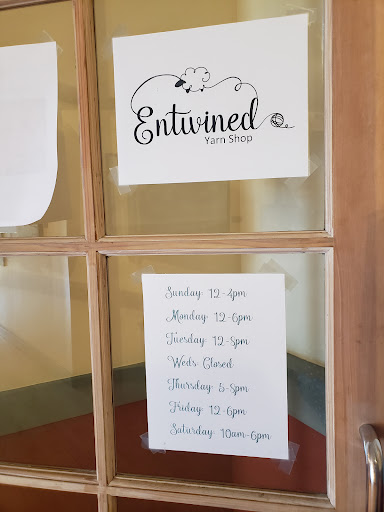 Entwined
Yarn Shop
Sunday 12-4pm
Monday 12-6pm
Tuesday 12-8pm
Weds Closed
Thursday 5-8pm
Friday 12-6pm
Saturday 10am-6pm